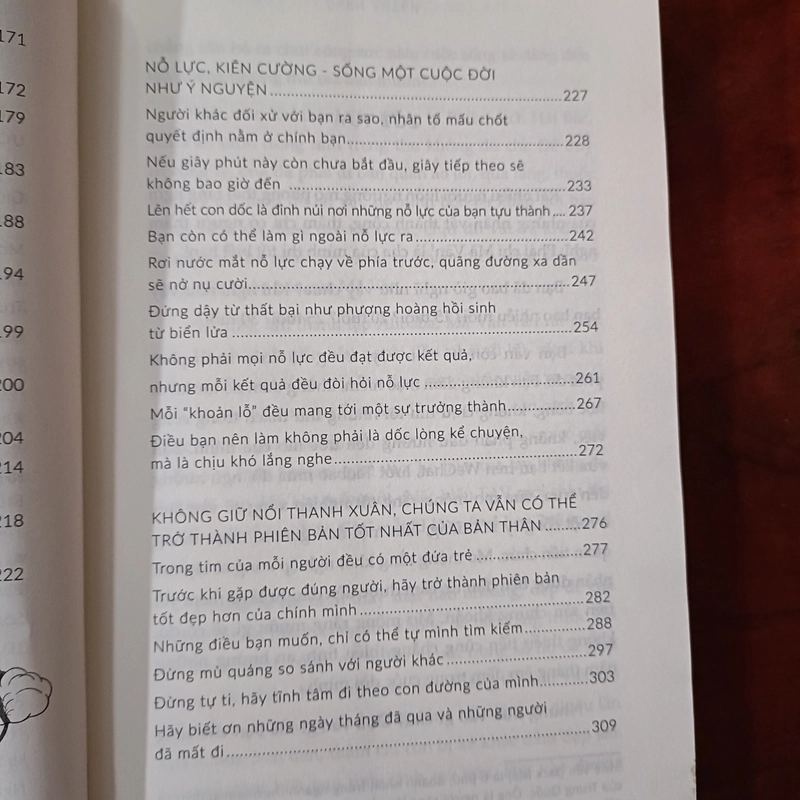 171
172
179
183
188
194
199
200
204
214
218
222
NỖ LỰC, KIÊN CƯỜNG - SỐNG MỘT CUỘC ĐỜI
NHƯ Ý NGUYỆN.....227
Người khác đối xử với bạn ra sao, nhân tố mấu chốt
quyết định nằm ở chính bạn.....228
Nếu giây phút này còn chưa bắt đầu, giây tiếp theo sẽ
không bao giờ đến .....233
Lên hết con dốc là đỉnh núi nơi những nỗ lực của bạn tựu thành.... 237
Bạn còn có thể làm gì ngoài nỗ lực ra.....242
Rơi nước mắt nỗ lực chạy về phía trước, quãng đường xa dần
sẽ nở nụ cười.....247
Đứng dậy từ thất bại như phượng hoàng hồi sinh
từ biển lửa .....254
Không phải mọi nỗ lực đều đạt được kết quả,
nhưng mỗi kết quả đều đòi hỏi nỗ lực .....261
Mỗi “khoản lỗ” đều mang tới một sự trưởng thành.....267
Điều bạn nên làm không phải là dốc lòng kể chuyện,
mà là chịu khó lắng nghe.....272
KHÔNG GIỮ NỔI THANH XUÂN, CHÚNG TA VẪN CÓ THỂ
TRỞ THÀNH PHIÊN BẢN TỐT NHẤT CỦA BẢN THÂN.....276
Trong tim của mỗi người đều có một đứa trẻ .....277
Trước khi gặp được đúng người, hãy trở thành phiên bản
tốt đẹp hơn của chính mình.....282
Những điều bạn muốn, chỉ có thể tự mình tìm kiếm.....288
Đừng mù quáng so sánh với người khác .....297
Đừng tự ti, hãy tĩnh tâm đi theo con đường của mình.....303
Hãy biết ơn những ngày tháng đã qua và những người
đã mất đi.....309